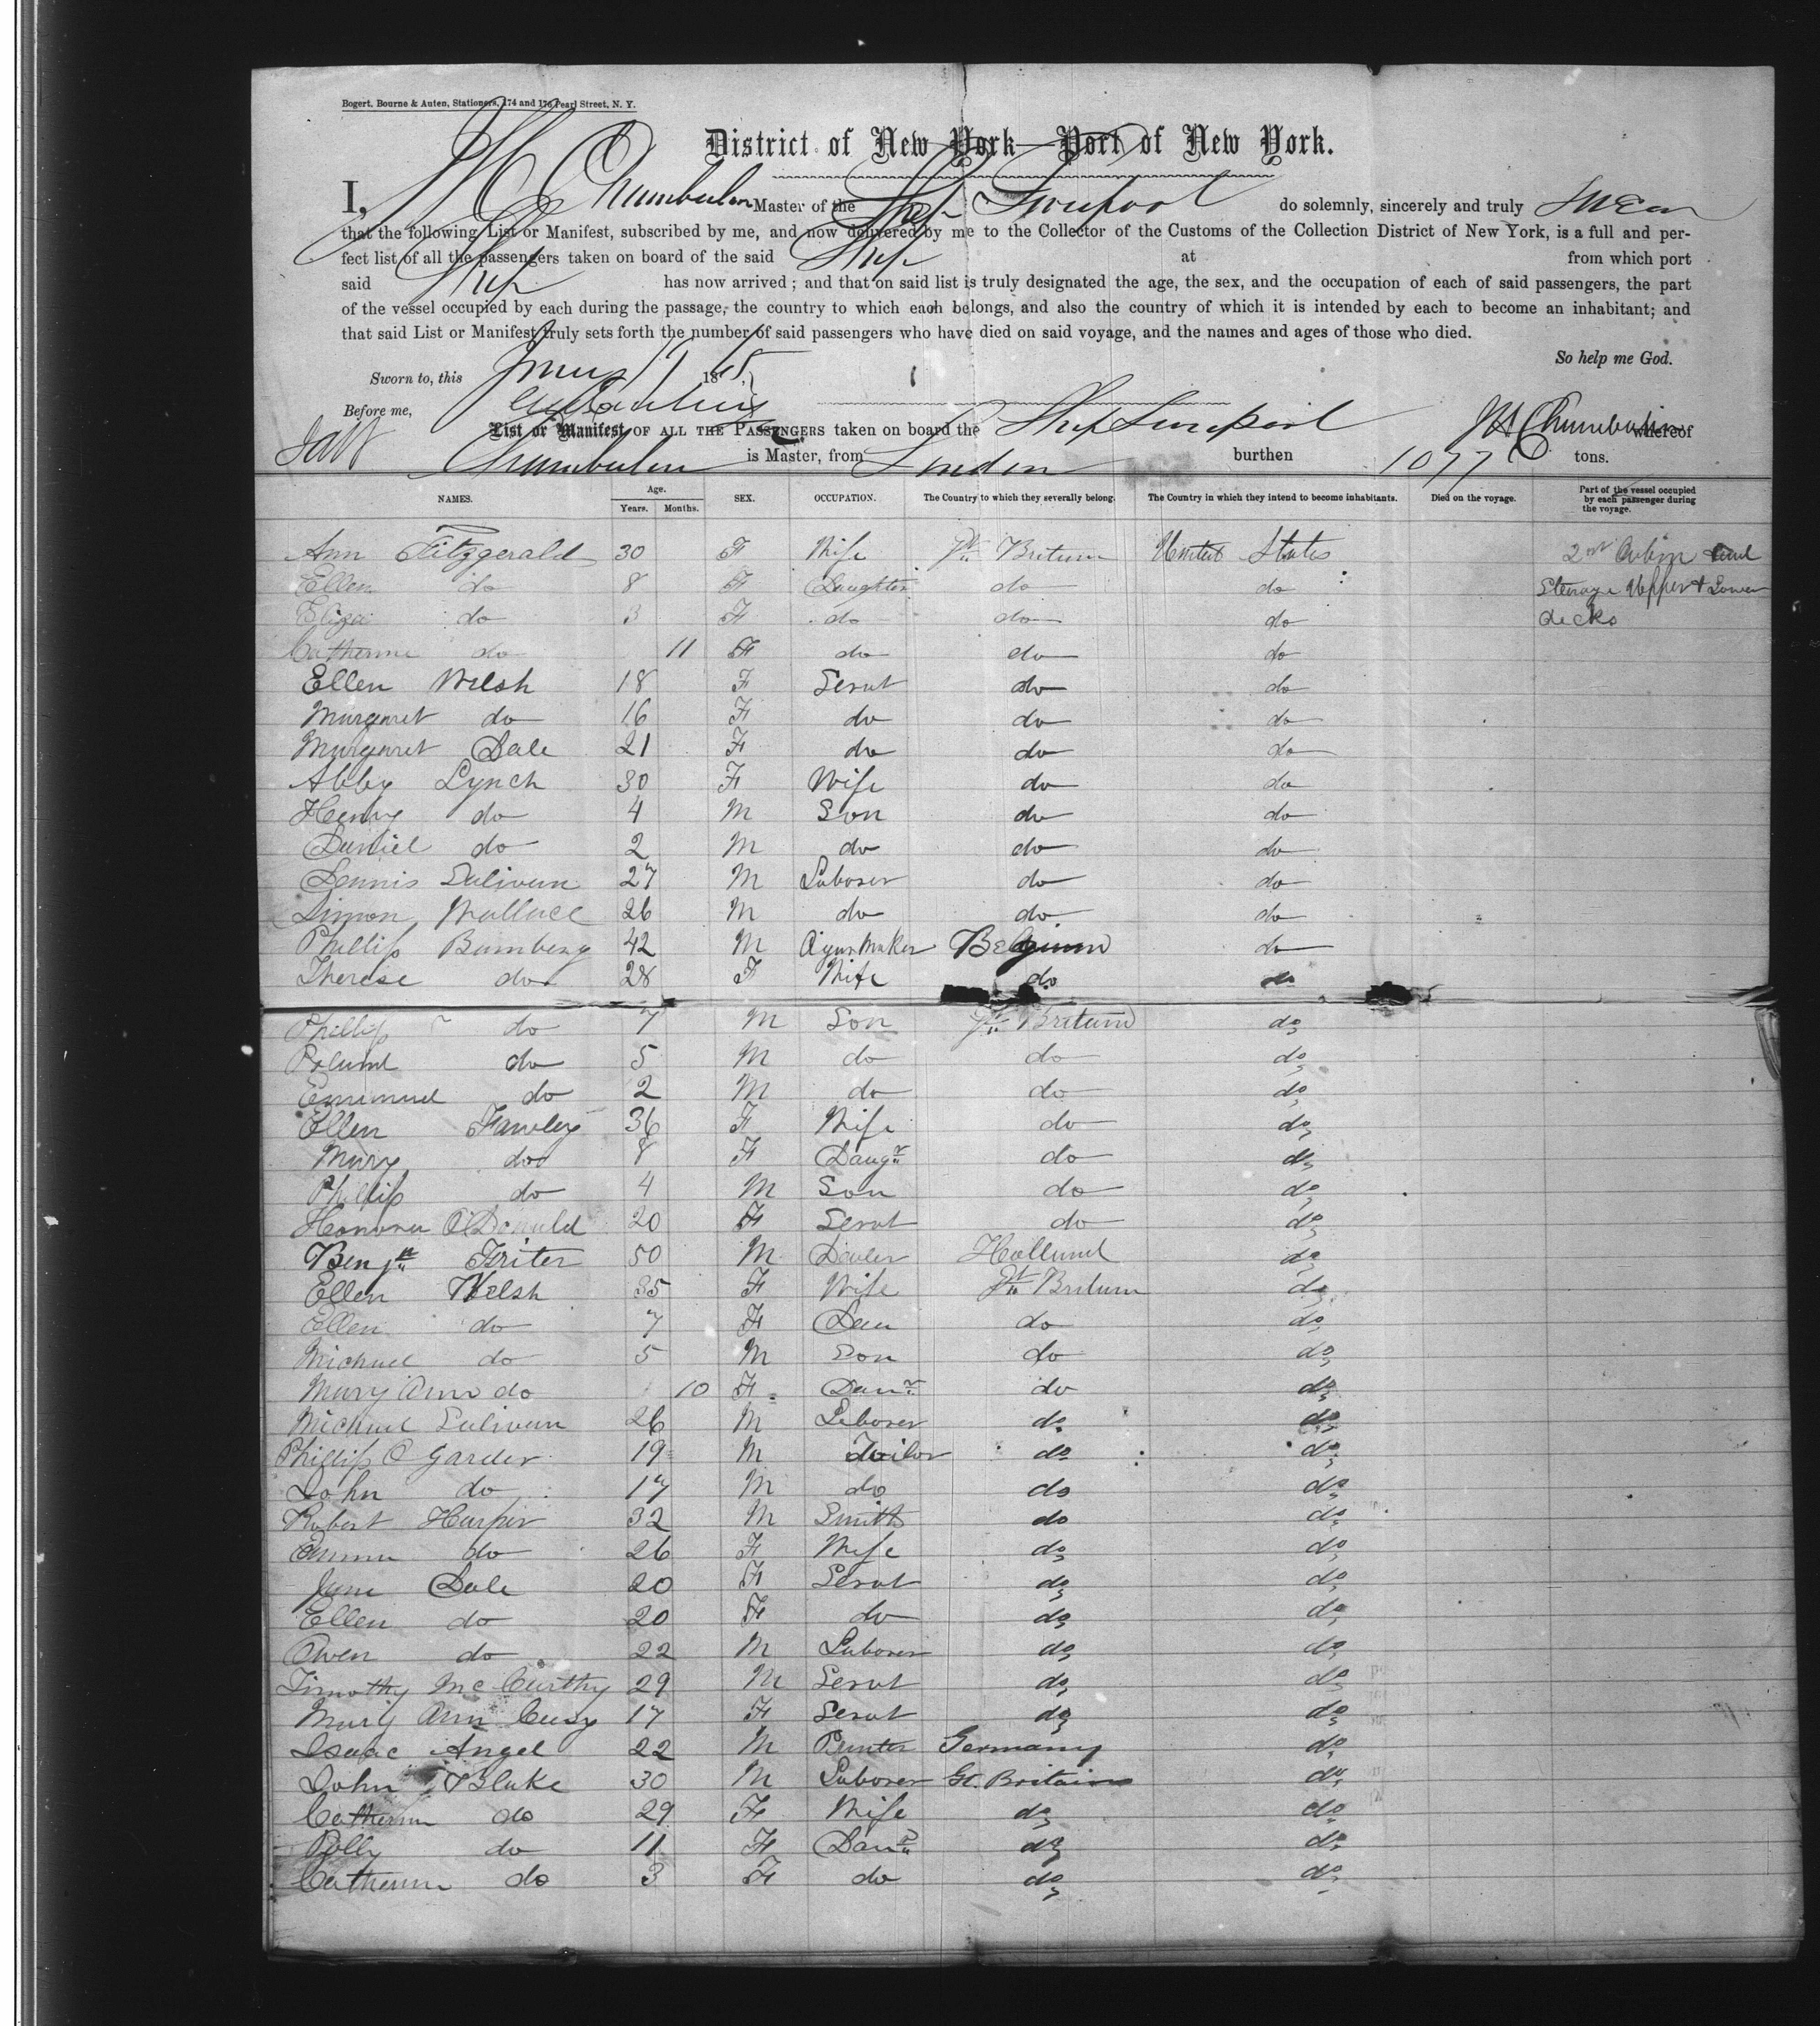 Bogert, Bourne & Auten, Stationers, 174 and 176 Pearl Street, N. Y.
District of New York—Port of New York.
I, Chamberlain Master of the Ship Liverpool do solemnly, sincerely and truly swear
that the following List or Manifest, subscribed by me, and now delivered by me to the Collector of the Customs of the Collection District of New York, is a full and per-
fect list of all the passengers taken on board of the said Ship at from which port
said Ship has now arrived; and that on said list is truly designated the age, the sex, and the occupation of each of said passengers, the part
of the vessel occupied by each during the passage, the country to which each belongs, and also the country of which it is intended by each to become an inhabitant; and
that said List or Manifest truly sets forth the number of said passengers who have died on said voyage, and the names and ages of those who died.
So help me God.
Sworn to, this 18
Before me,
List or Manifest OF ALL THE PASSENGERS taken on board the Ship Liverpool whereof
Chamberlain is Master, from London burthen 1077 tons.
NAMES. Age. Years. Months. SEX. OCCUPATION. The Country to which they severally belong. The Country in which they intend to become inhabitants. Died on the voyage. Part of the vessel occupied by each passenger during the voyage.
Ann Fitzgerald 30 F Wife Gt Britain United States 2nd Cabin and
Ellen do 8 F Daughter do do Steerage Upper & Lower
Eliza do 3 F do do do decks
Catherine do 11 F do do do
Ellen Welsh 18 F Servt do do
Margaret do 16 F do do do
Margaret Dale 21 F do do do
Abby Lynch 30 F Wife do do
Henry do 4 M Son do do
Daniel do 2 M do do do
Dennis Sulivan 27 M Laborer do do
Simon Wallace 26 M do do do
Phillip Bamberg 42 M Cigar Maker Belgium do
Therese do 28 F Wife do do
Phillip do 7 M Son Gt Britain do
do 5 M do do do
Emanuel do 2 M do do do
Ellen Fawley 36 F Wife do do
Mary do 8 F Daugr do do
Phillip do 4 M Son do do
Honora O'Donald 20 F Servt do do
Benjn Friter 50 M Dealer Holland do
Ellen Welsh 35 F Wife Gt Britain do
Ellen do 7 F Dau do do
Michael do 5 M Son do do
Mary Ann do 10 F Daur do do
Michael Sulivan 26 M Laborer do do
Phillip O Garder 19 M Tailor do do
John do 17 M do do do
Robert Harper 32 M Smith do do
Emma do 26 F Wife do do
Jane Dale 20 F Servt do do
Ellen do 20 F do do do
Owen do 22 M Laborer do do
Timothy McCarthy 29 M Servt do do
Mary Ann Casy 17 F Servt do do
Isaac Angel 22 M Germany do
John Blake 30 M Laborer Gt. Britain do
Catherin do 29 F Wife do do
Polly do 11 F Daur do do
Catherin do 3 F do do do